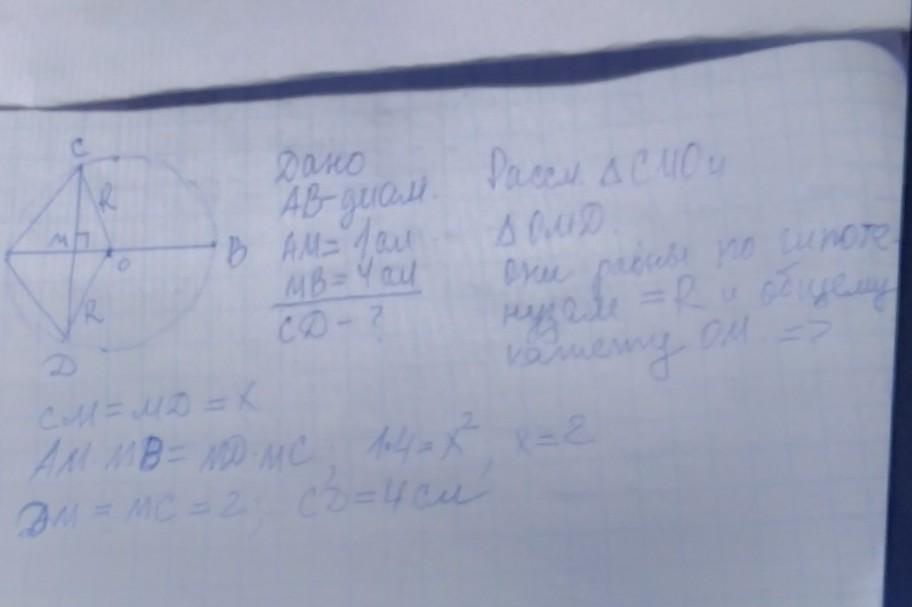 C
R
M
O
B
R
D
Дано
AB-диам.
AM=1см
MB=4см
CD-?
Рассм. △CMO и
△OMD.
они равны по гипоте-
нузам =R и общему
катету OM =>
CM=MD=X
AM·MB=MD·MC; 1·4=x², x=2
DM=MC=2; CD=4см